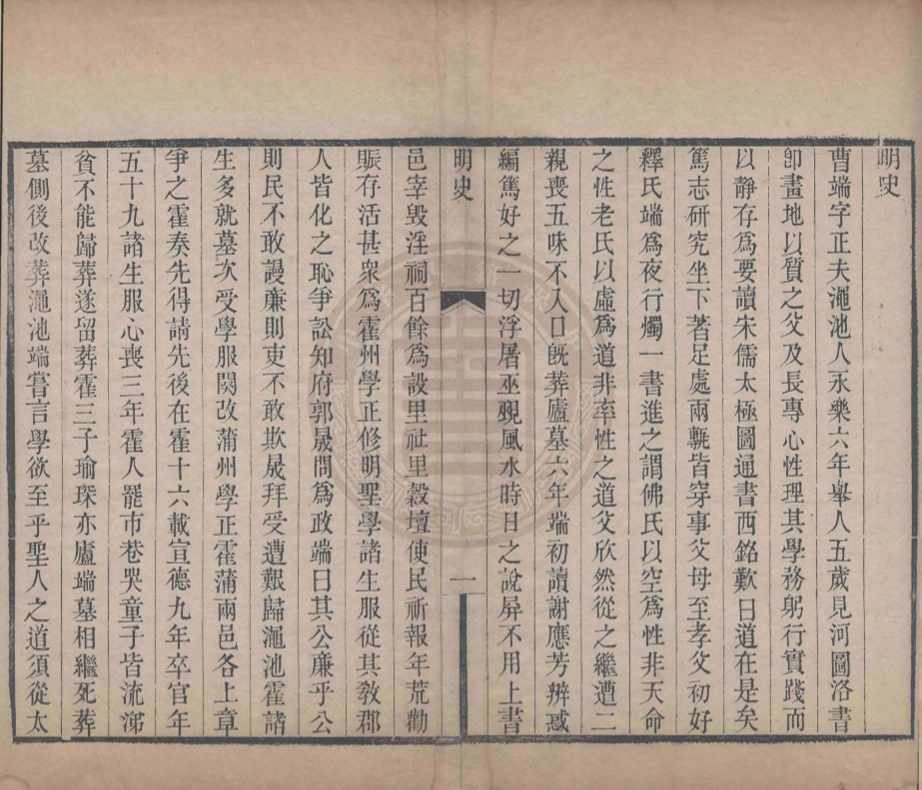 明史
曹端字正夫澠池人永樂六年舉人五歲見河圖洛書
卽畫地以質之父及長專心性理其學務躬行實踐而
以靜存爲要讀宋儒太極圖通書西銘歎曰道在是矣
篤志研究坐下著足處兩甎皆穿事父母至孝父初好
釋氏端爲夜行燭一書進之謂佛氏以空爲性非天命
之性老氏以虛爲道非率性之道父欣然從之繼遭二
親喪五味不入口旣葬廬墓六年端初讀謝應芳辨惑
編篤好之一切浮屠巫覡風水時日之說屏不用上書
明史
一
邑宰毀淫祠百餘爲設里社里穀壇使民祈報年荒勸
賑存活甚衆爲霍州學正修明聖學諸生服從其敎郡
人皆化之恥爭訟知府郭晟問爲政端曰其公廉乎公
則民不敢謾廉則吏不敢欺晟拜受遭艱歸澠池霍諸
生多就墓次受學服闋改蒲州學正霍蒲兩邑各上章
爭之霍奏先得請先後在霍十六載宣德九年卒官年
五十九諸生服心喪三年霍人罷市巷哭童子皆流涕
貧不能歸葬遂留葬霍三子瑜琛亦廬端墓相繼死葬
墓側後改葬澠池端嘗言學欲至乎聖人之道須從太